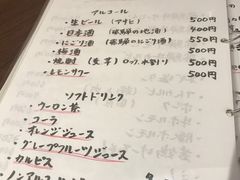 アルコール
・生ビール(アサヒ) 500円
・日本酒(飛騨の地酒) 400円
・にごり酒(飛騨のにごり酒) 550円
・梅酒 500円
・焼酎(麦・芋)ロック、水割り 500円
・レモンサワー 500円
ソフトドリンク
・ウーロン茶
・コーラ
・オレンジジュース
・グレープフルーツジュース
・カルピス
・ノンアルコール